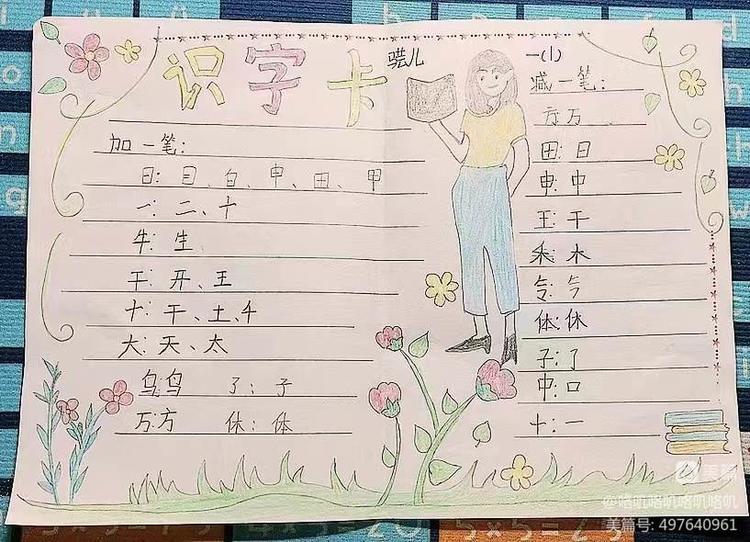 识字卡
骐儿
一(1)
加一笔:
日:目、白、申、田、甲
一:二、十
牛:生
干:开、王
十:干、土、千
大:天、太
乌:鸟 了:子
万:方 休:体
减一笔:
方:万
田:日
申:中
王:干
禾:木
气
体:休
子:了
中:口
十:一
美篇
@咯叽咯叽咯叽咯叽
美篇号: 497640961
5 x 5 = 25